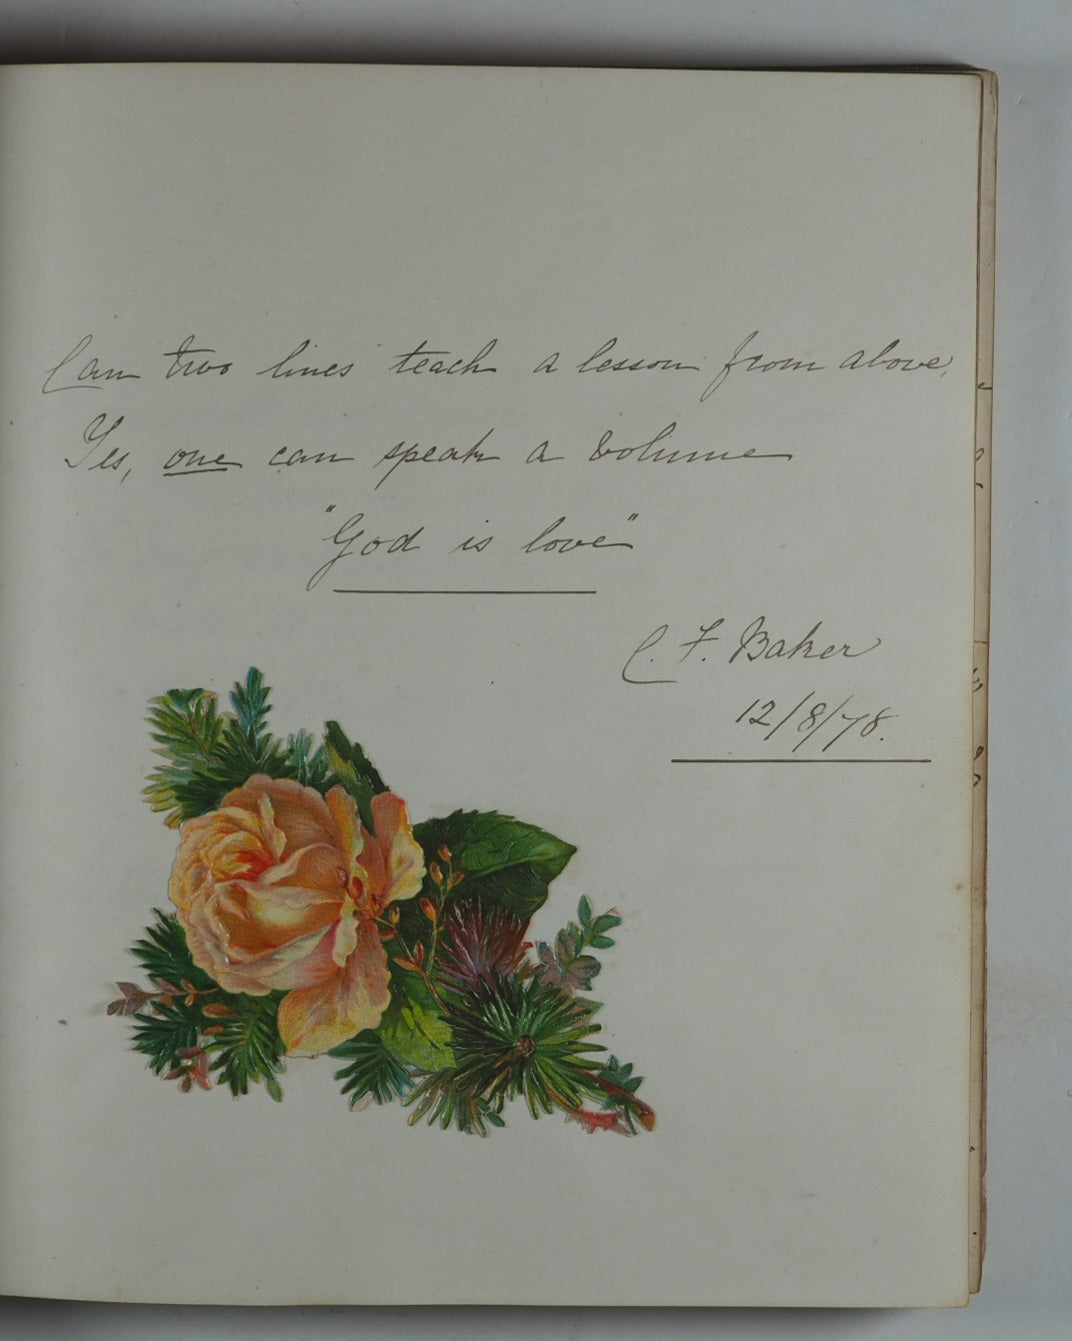 Can two lines teach a lesson from above,
Yes, one can speak a volume
"God is love"
C. F. Baker
12/8/78.